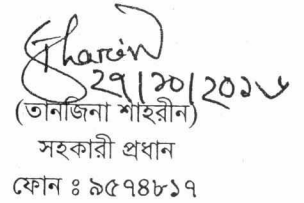 ২৭/১০/২০১৬
(তানজিনা শাহ্‌রীন)
সহকারী প্রধান
ফোন ঃ ৯৫৭৪৮১৭